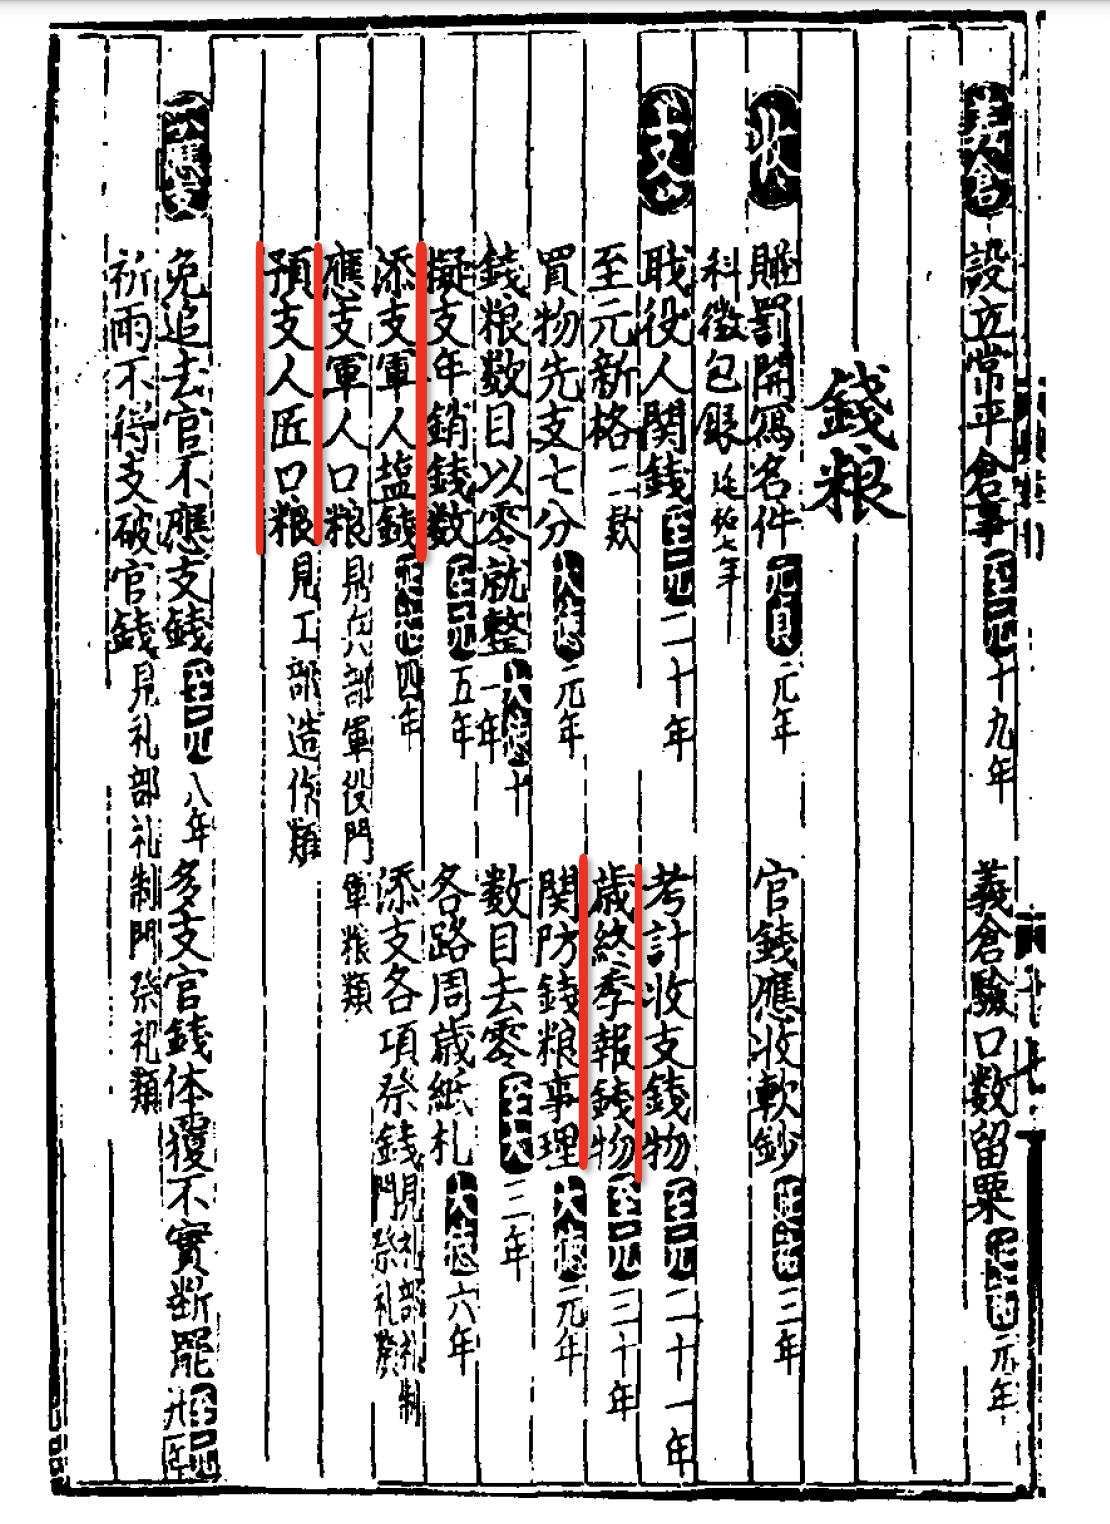 義倉 設立常平倉事 至元十九年 義倉驗口数留粟 延祐元年
錢粮
收 賍罰開寫名件 元貞元年 官錢應收軟鈔 延祐三年
科徵包銀 延祐七年
支 戝役人関錢 至元二十年 考計收支錢物 至元二十一年
至元新格二款 歳終季報錢物 至元三十年
買物先支七分 大德元年 関防錢粮事理 大德元年
錢粮数目以零就整 大德十一年 数目去零 至大三年
擬支年銷錢数 至元五年 各路周歳紙札 大德六年
添支軍人塩錢 四年 添支各項祭錢 見礼部礼制門祭礼類
應支軍人口粮 見兵部軍役門軍粮類
預支人匠口粮 見工部造作類
不應支 免追去官不應支錢 至元八年 多支官錢体覆不實断罷 至元卅年
祈雨不得支破官錢 見礼部礼制門祭祀類